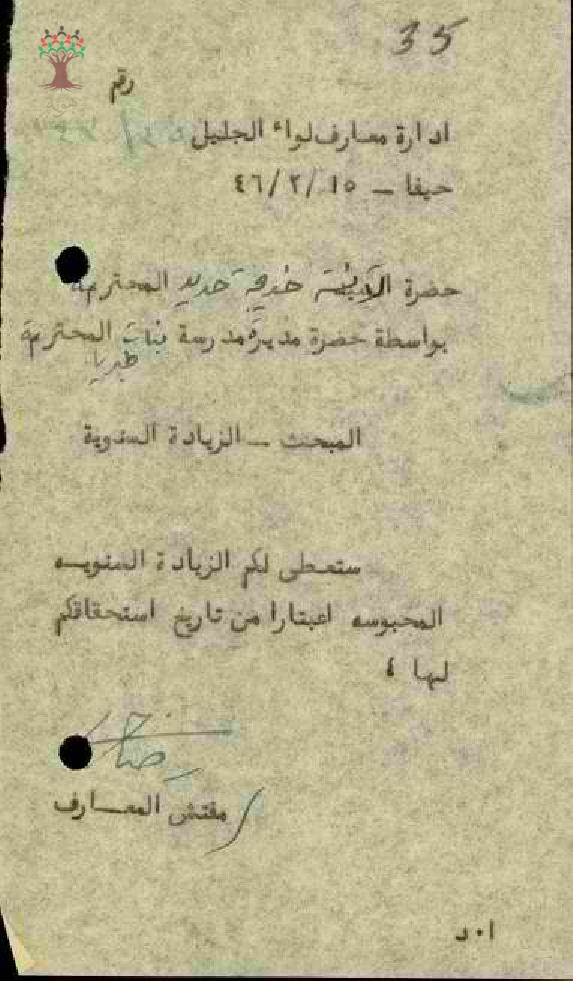 35
رقم
ادارة معارف لواء الجليل
حيفا - ٤٦/٢/١٥
حضرة الآنسة خديجة حديد المحترمة
بواسطة حضرة مديرة مدرسة بنات المحترمة
طبريا
المبحث - الزيادة السنوية
ستعطى لكم الزيادة السنويه
المحبوسه اعتبارا من تاريخ استحقاقكم
لها ؛
مفتش المعارف
ا٠د